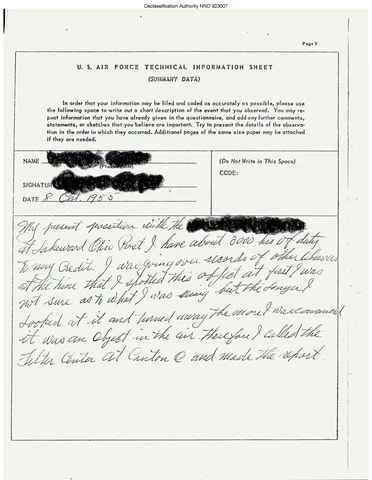 Declassification Authority NND 923007
Page 5
U. S. AIR FORCE TECHNICAL INFORMATION SHEET
(SUMMARY DATA)
In order that your information may be filed and coded as accurately as possible, please use
the following space to write out a short description of the event that you observed. You may re-
peat information that you have already given in the questionnaire, and add any further comments,
statements, or sketches that you believe are important. Try to present the details of the observa-
tion in the order in which they occurred. Additional pages of the same size paper may be attached
if they are needed.
NAME
(Do Not Write in This Space)
SIGNATURE
CODE:
DATE 8 Oct. 1955
My present position with the
at Lakewood Ohio Post I have about 3000 hrs of duty
to my Credit. I was going over records of other observers
at the time that I spotted this object at first I was
not sure as to what I was seeing but the longer I
looked at it and turned away the more I was convinced
it was an object in the air therefore I called the
Filter Center at Canton O and made the report.